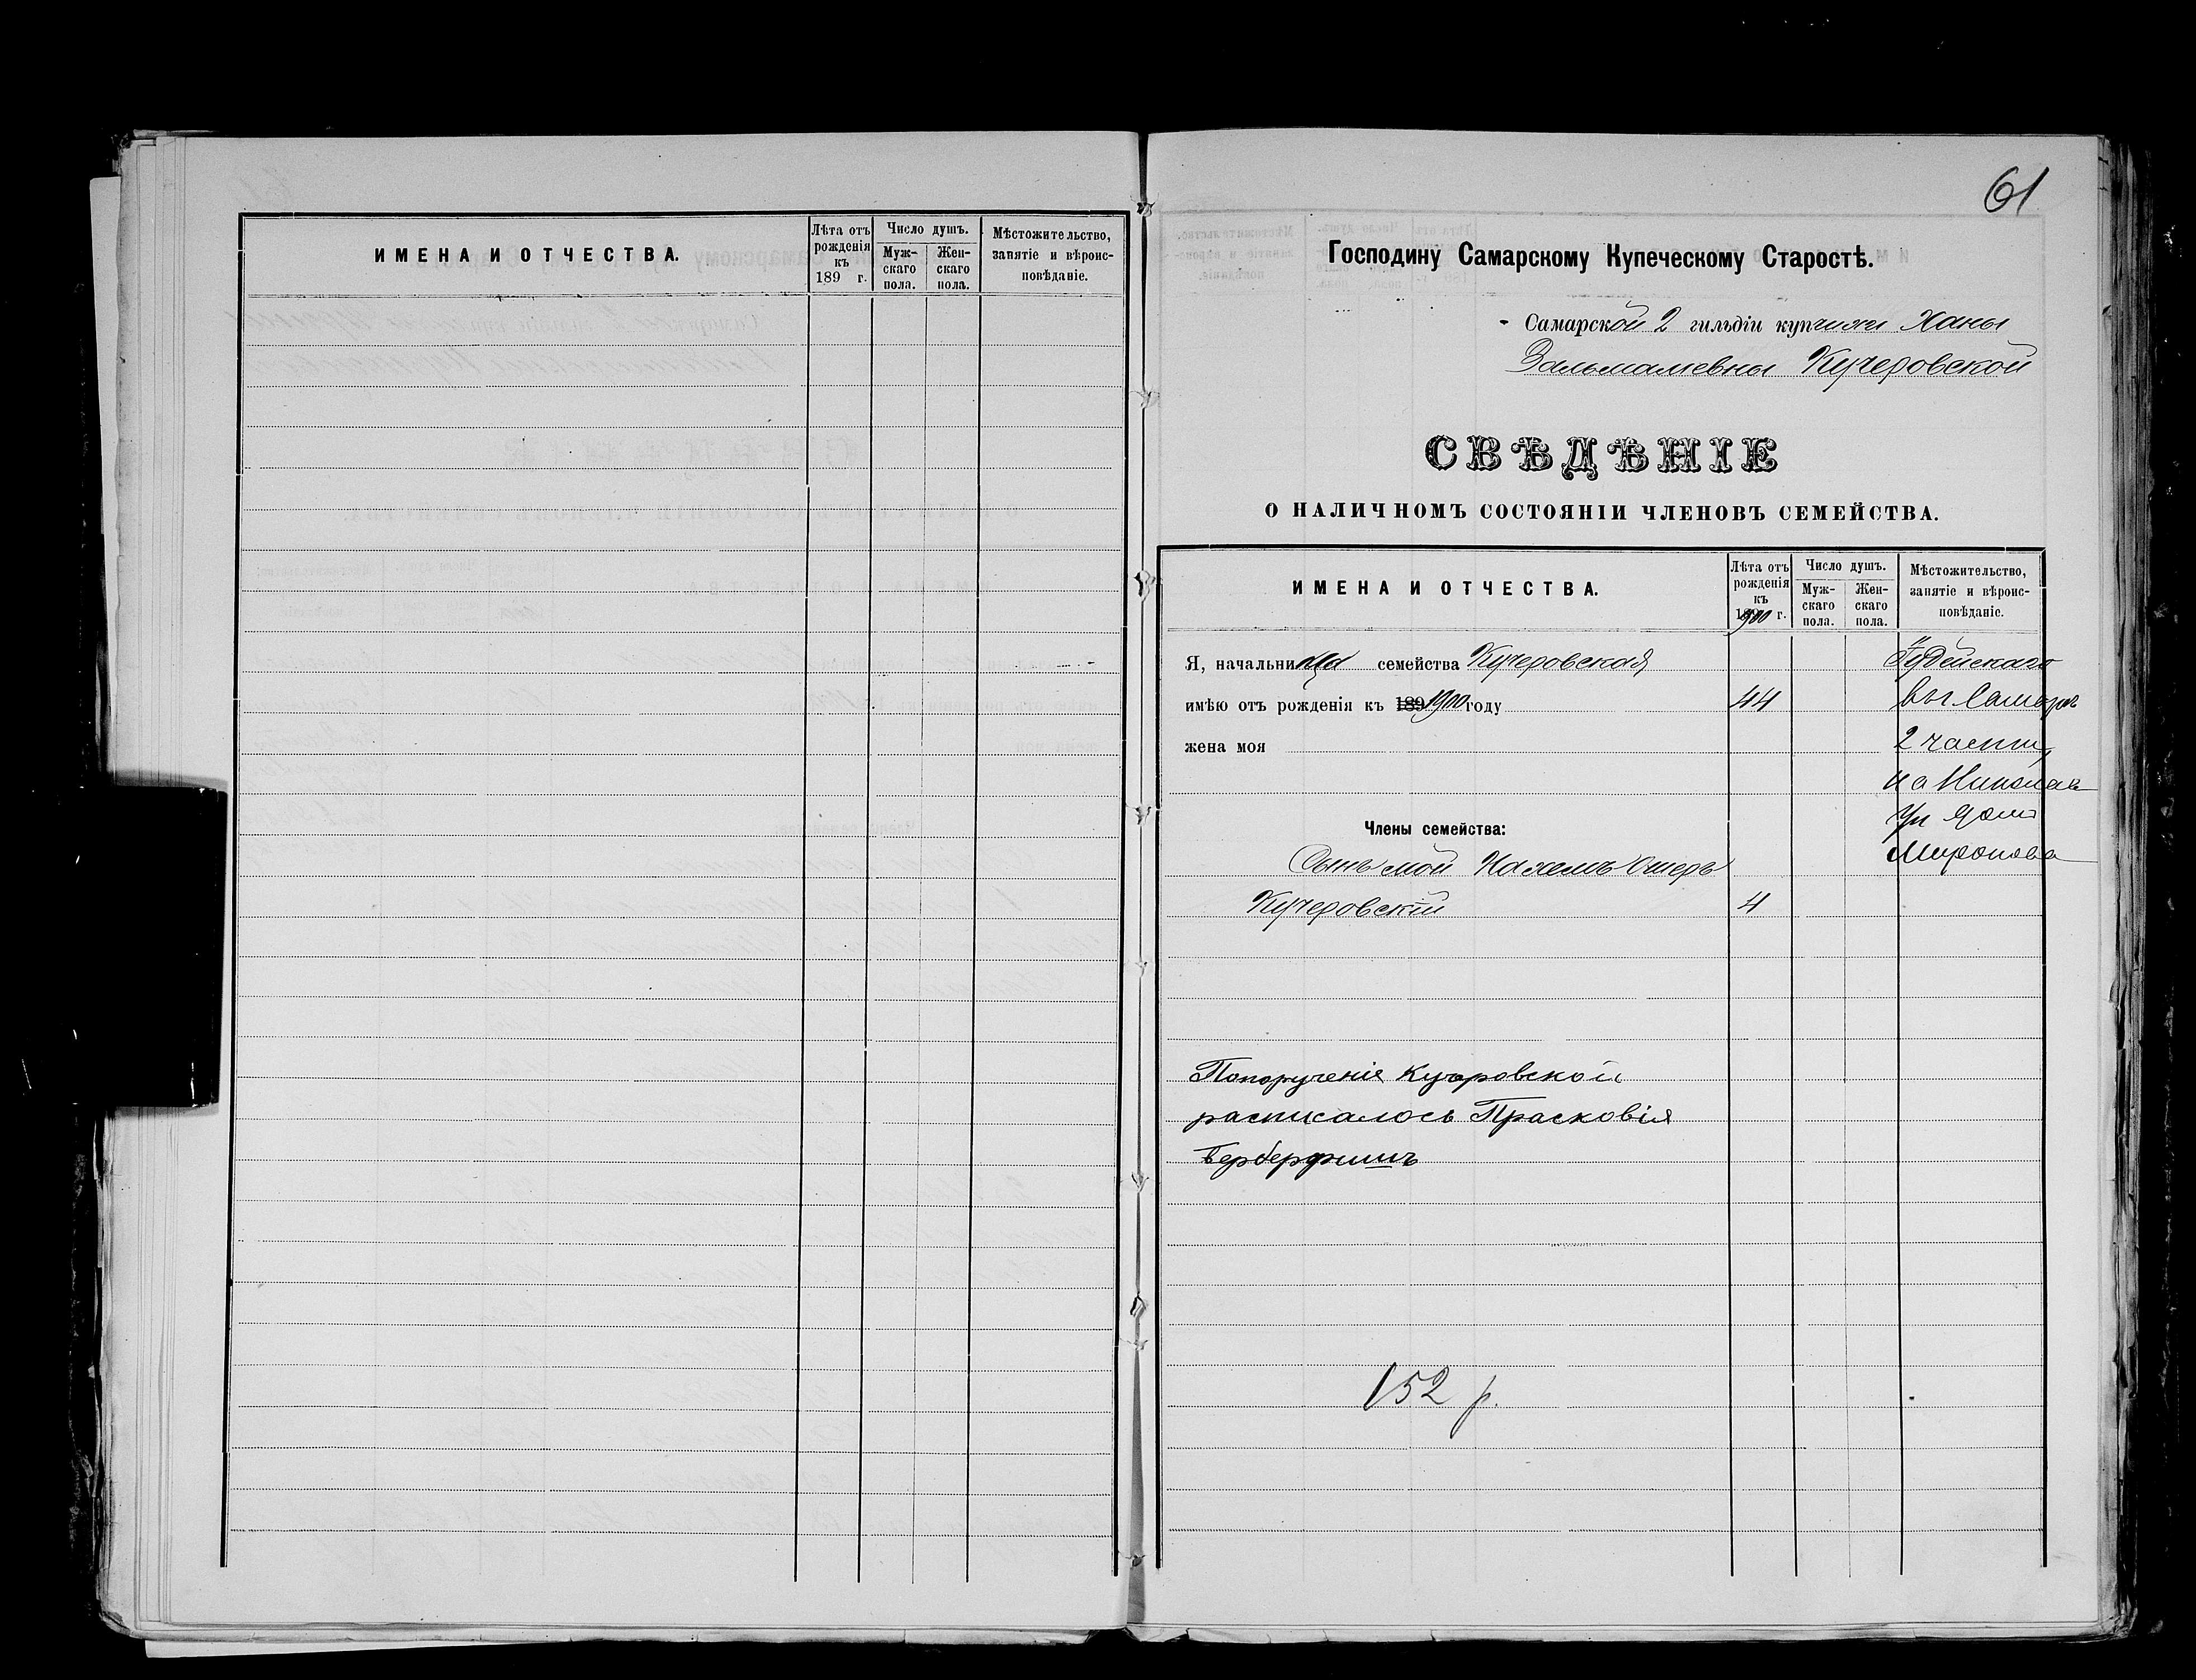 ИМЕНА И ОТЧЕСТВА.
Лѣта отъ рожденія къ 189 г.
Число душъ.
Мужскаго пола.
Женскаго пола.
Мѣстожительство, занятіе и вѣроисповѣданіе.
61
Господину Самарскому Купеческому Старостѣ.
Самарской 2 гильдіи купчихи Ханы
Зальмановны Кучеровской
СВѢДѢНІЕ
О НАЛИЧНОМЪ СОСТОЯНІИ ЧЛЕНОВЪ СЕМЕЙСТВА.
ИМЕНА И ОТЧЕСТВА.
Лѣта отъ рожденія къ 1900 г.
Число душъ.
Мужскаго пола.
Женскаго пола.
Мѣстожительство, занятіе и вѣроисповѣданіе.
Я, начальница семейства Кучеровская Іудейскаго
имѣю отъ рожденія къ 189 1900 году 44 въ г Самаръ
жена моя 2 части,
на Николаев
ул домъ
Члены семейства: Миронова
Сынъ мой Нахемъ Ошеръ
Кучеровскій 4
Попорученіе Кучеровской
расписалось Прасковія
Герберфишъ
152 р.